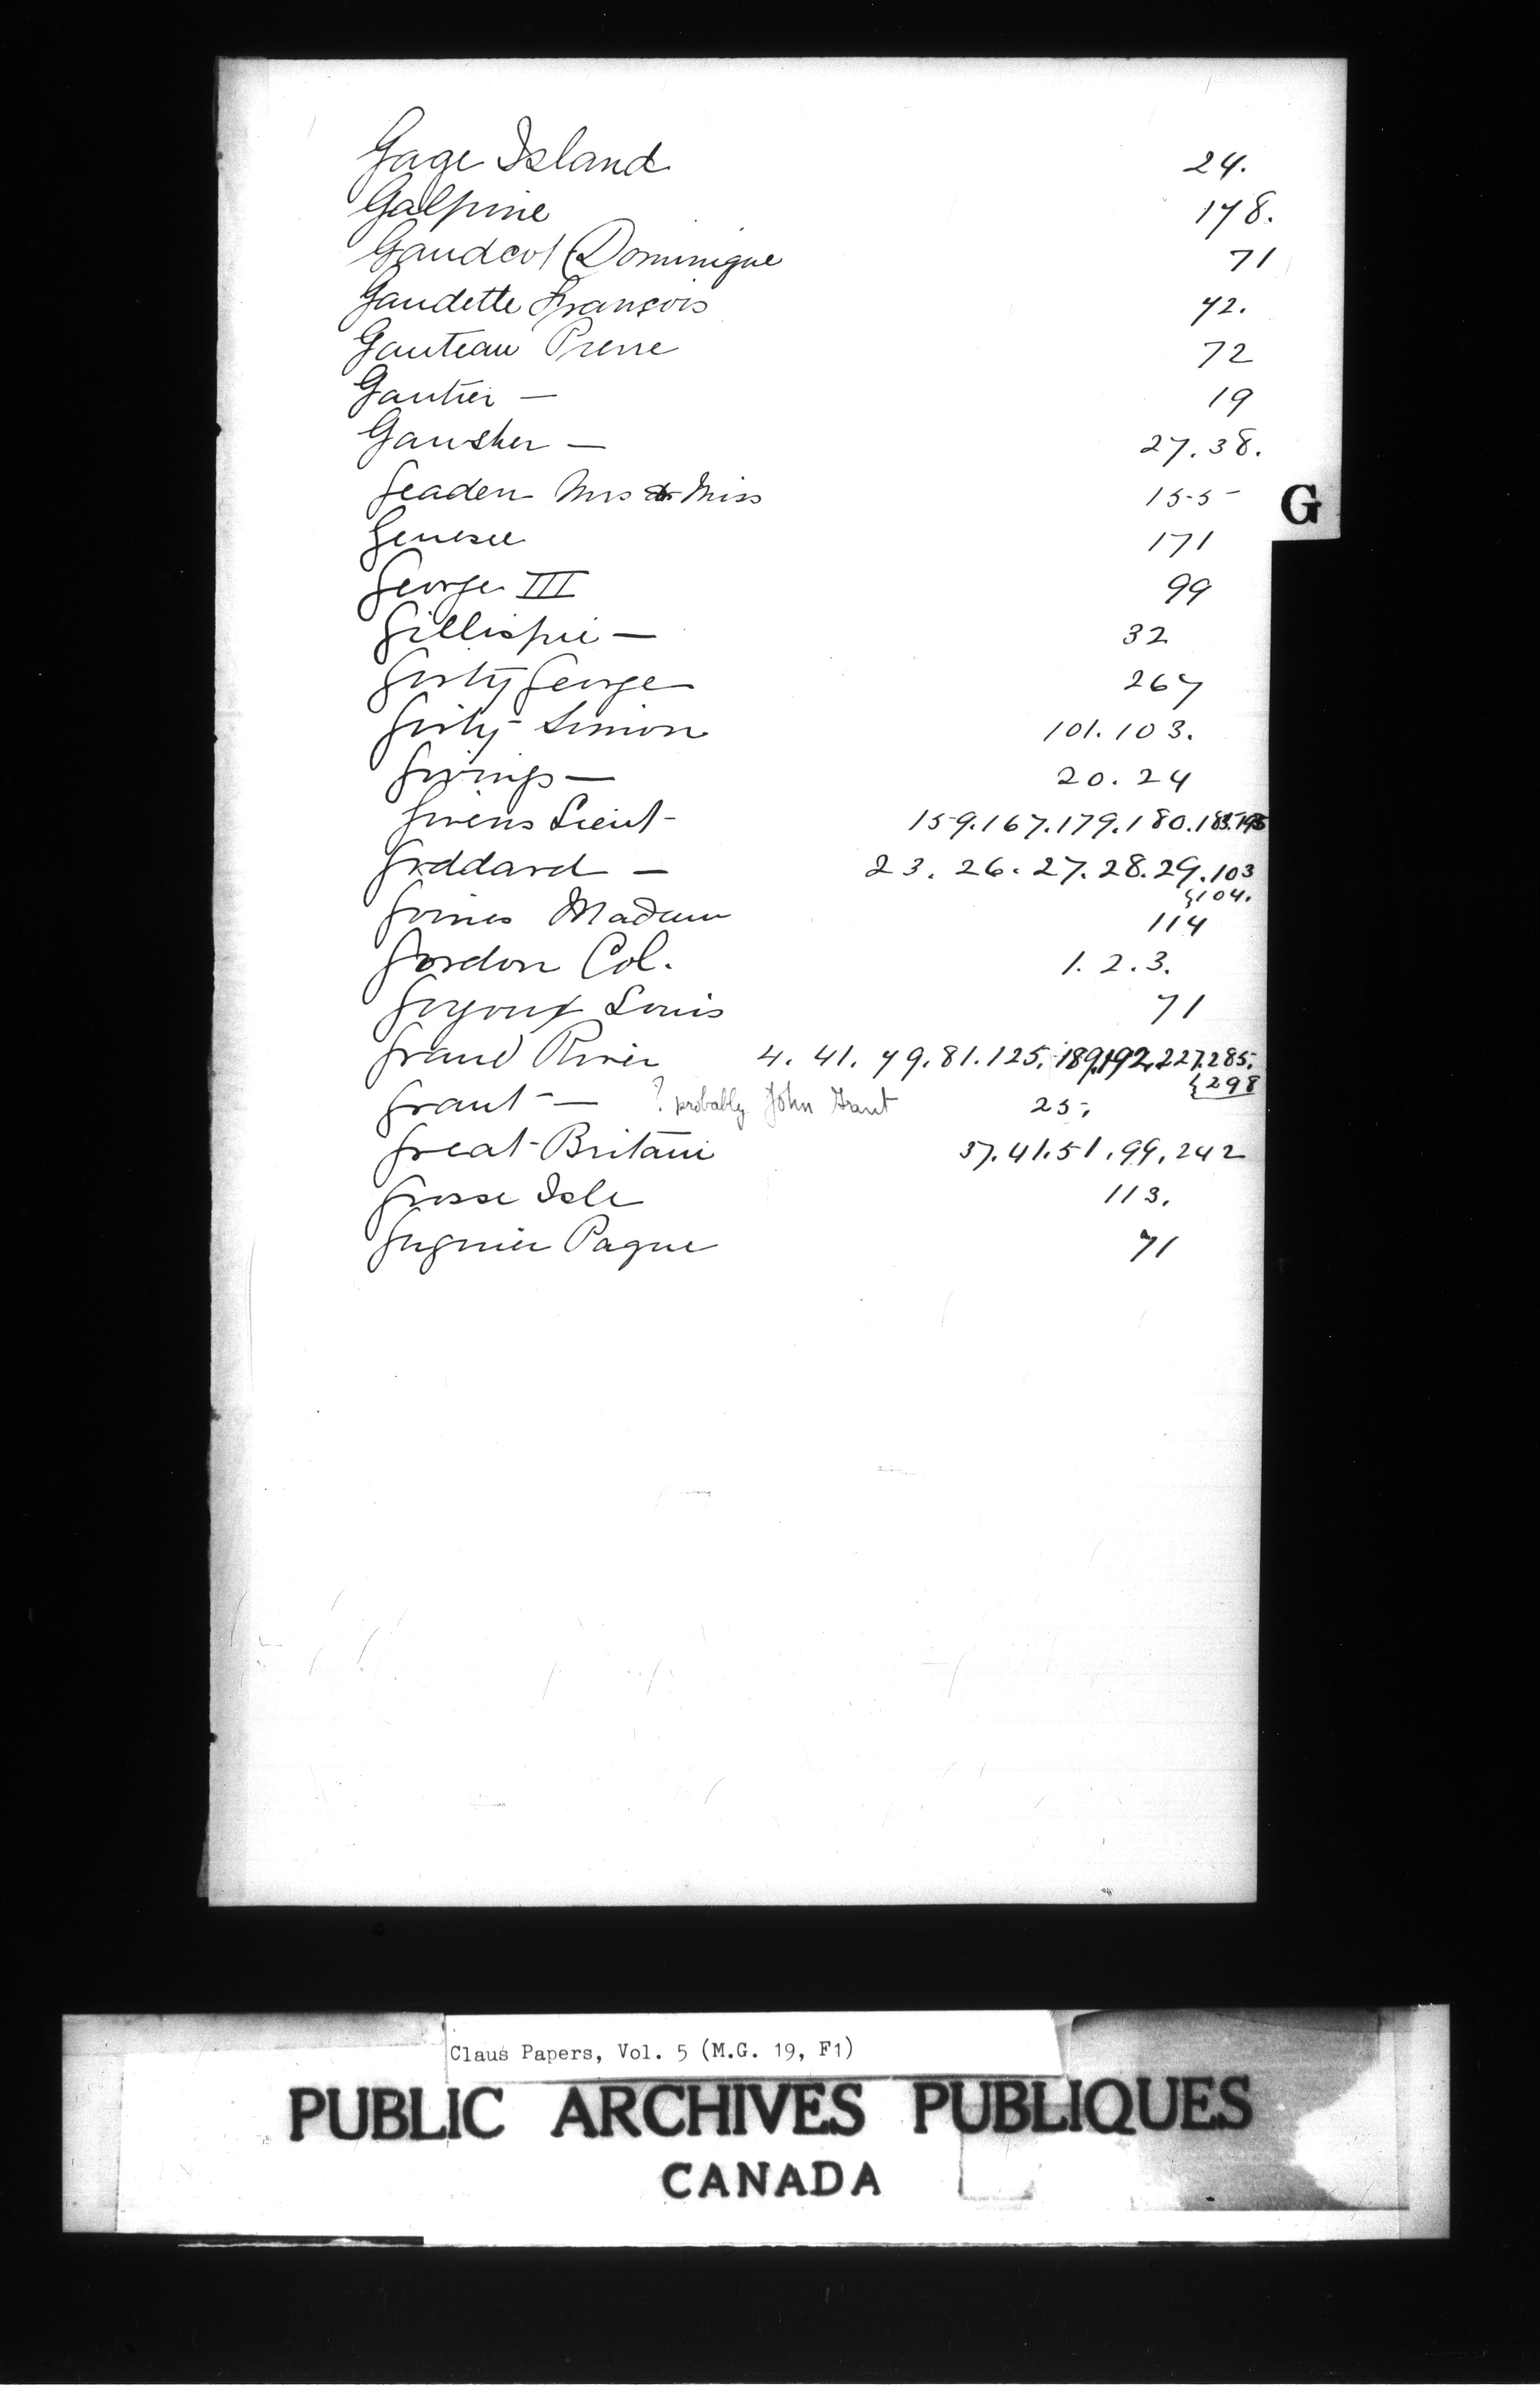 Gage Island 24.
Galpine 178.
Gaudcot (Dominique 71
Gaudette François 72.
Gauteau Pierre 72
Gautier — 19
Gausher — 27. 38.
Geaden Mrs & Miss 155
G
Genesee 171
George III 99
Gillispie — 32
Girty George 267
Girty Simon 101. 103.
Givings — 20. 24
Givens Lieut 159. 167. 179. 180. 183. 195
Goddard — 23. 26. 27. 28. 29. 103
104.
Goines Madam 114
Gordon Col. 1. 2. 3.
Goyoux Louis 71
Grand River 4. 41. 79. 81. 125. 189. 192. 227. 285.
298
Grant — ? probably John Grant 25.
Great Britain 37. 41. 51. 99. 242
Grosse Isle 113.
Gugnier Paque 71
Claus Papers, Vol. 5 (M.G. 19, F1)
PUBLIC ARCHIVES PUBLIQUES
CANADA